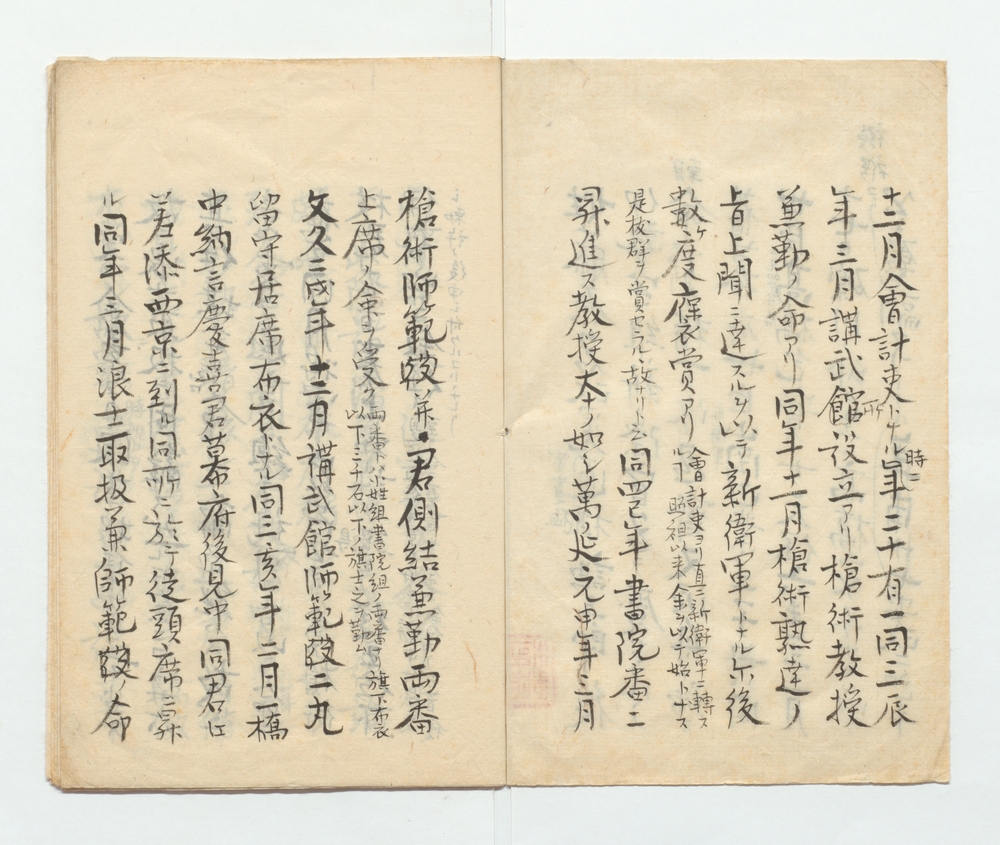 十二月會計吏トナル時ニ年二十有一同三辰
年三月講武館所設立アリ槍術教授
兼勤ノ命アリ同年十一月槍術熟達ノ
旨上聞ニ達スルヲ以テ新衛軍トナル尓後
數ケ度褒賞アリ
會計吏ヨリ直ニ新衛軍ニ轉ス
ルハ照祖以来余ヲ以テ始トナス
是抜群ヲ賞セラルヽ故ナリト云
同四巳年書院番ニ
昇進ス教授太ノ如シ萬延元申年三月
槍術師範役並君側結兼勤両番
上席ノ命ヲ受ク
両番トハ小姓組書院組ノ両番ナリ旗下布衣
以下三千石以下ノ旗士之ヲ勤ム
文久二戌年十二月講武館師範役二丸
留守居席布衣トナル同三亥年二月一橋
中納言慶喜君幕府後見中同君ニ
差添西京ニ到ル同所ニ於テ徒頭席ニ昇
ル同年三月浪士取扱兼師範役ノ命